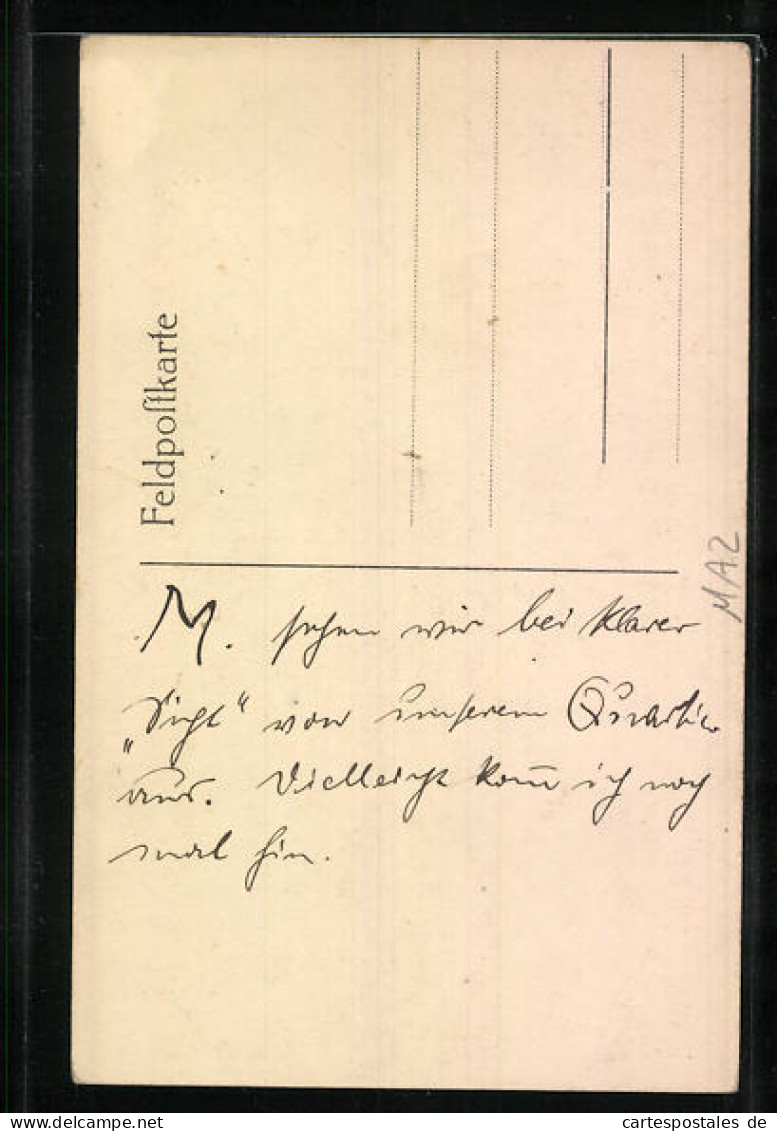 Feldpoſtkarte
MA2
M. sehen wir bei klarer
„Sicht“ von unserem Quartier
aus. Vielleicht komm̅ ich noch
mal hin.
www.delcampe.net
cartespostales de